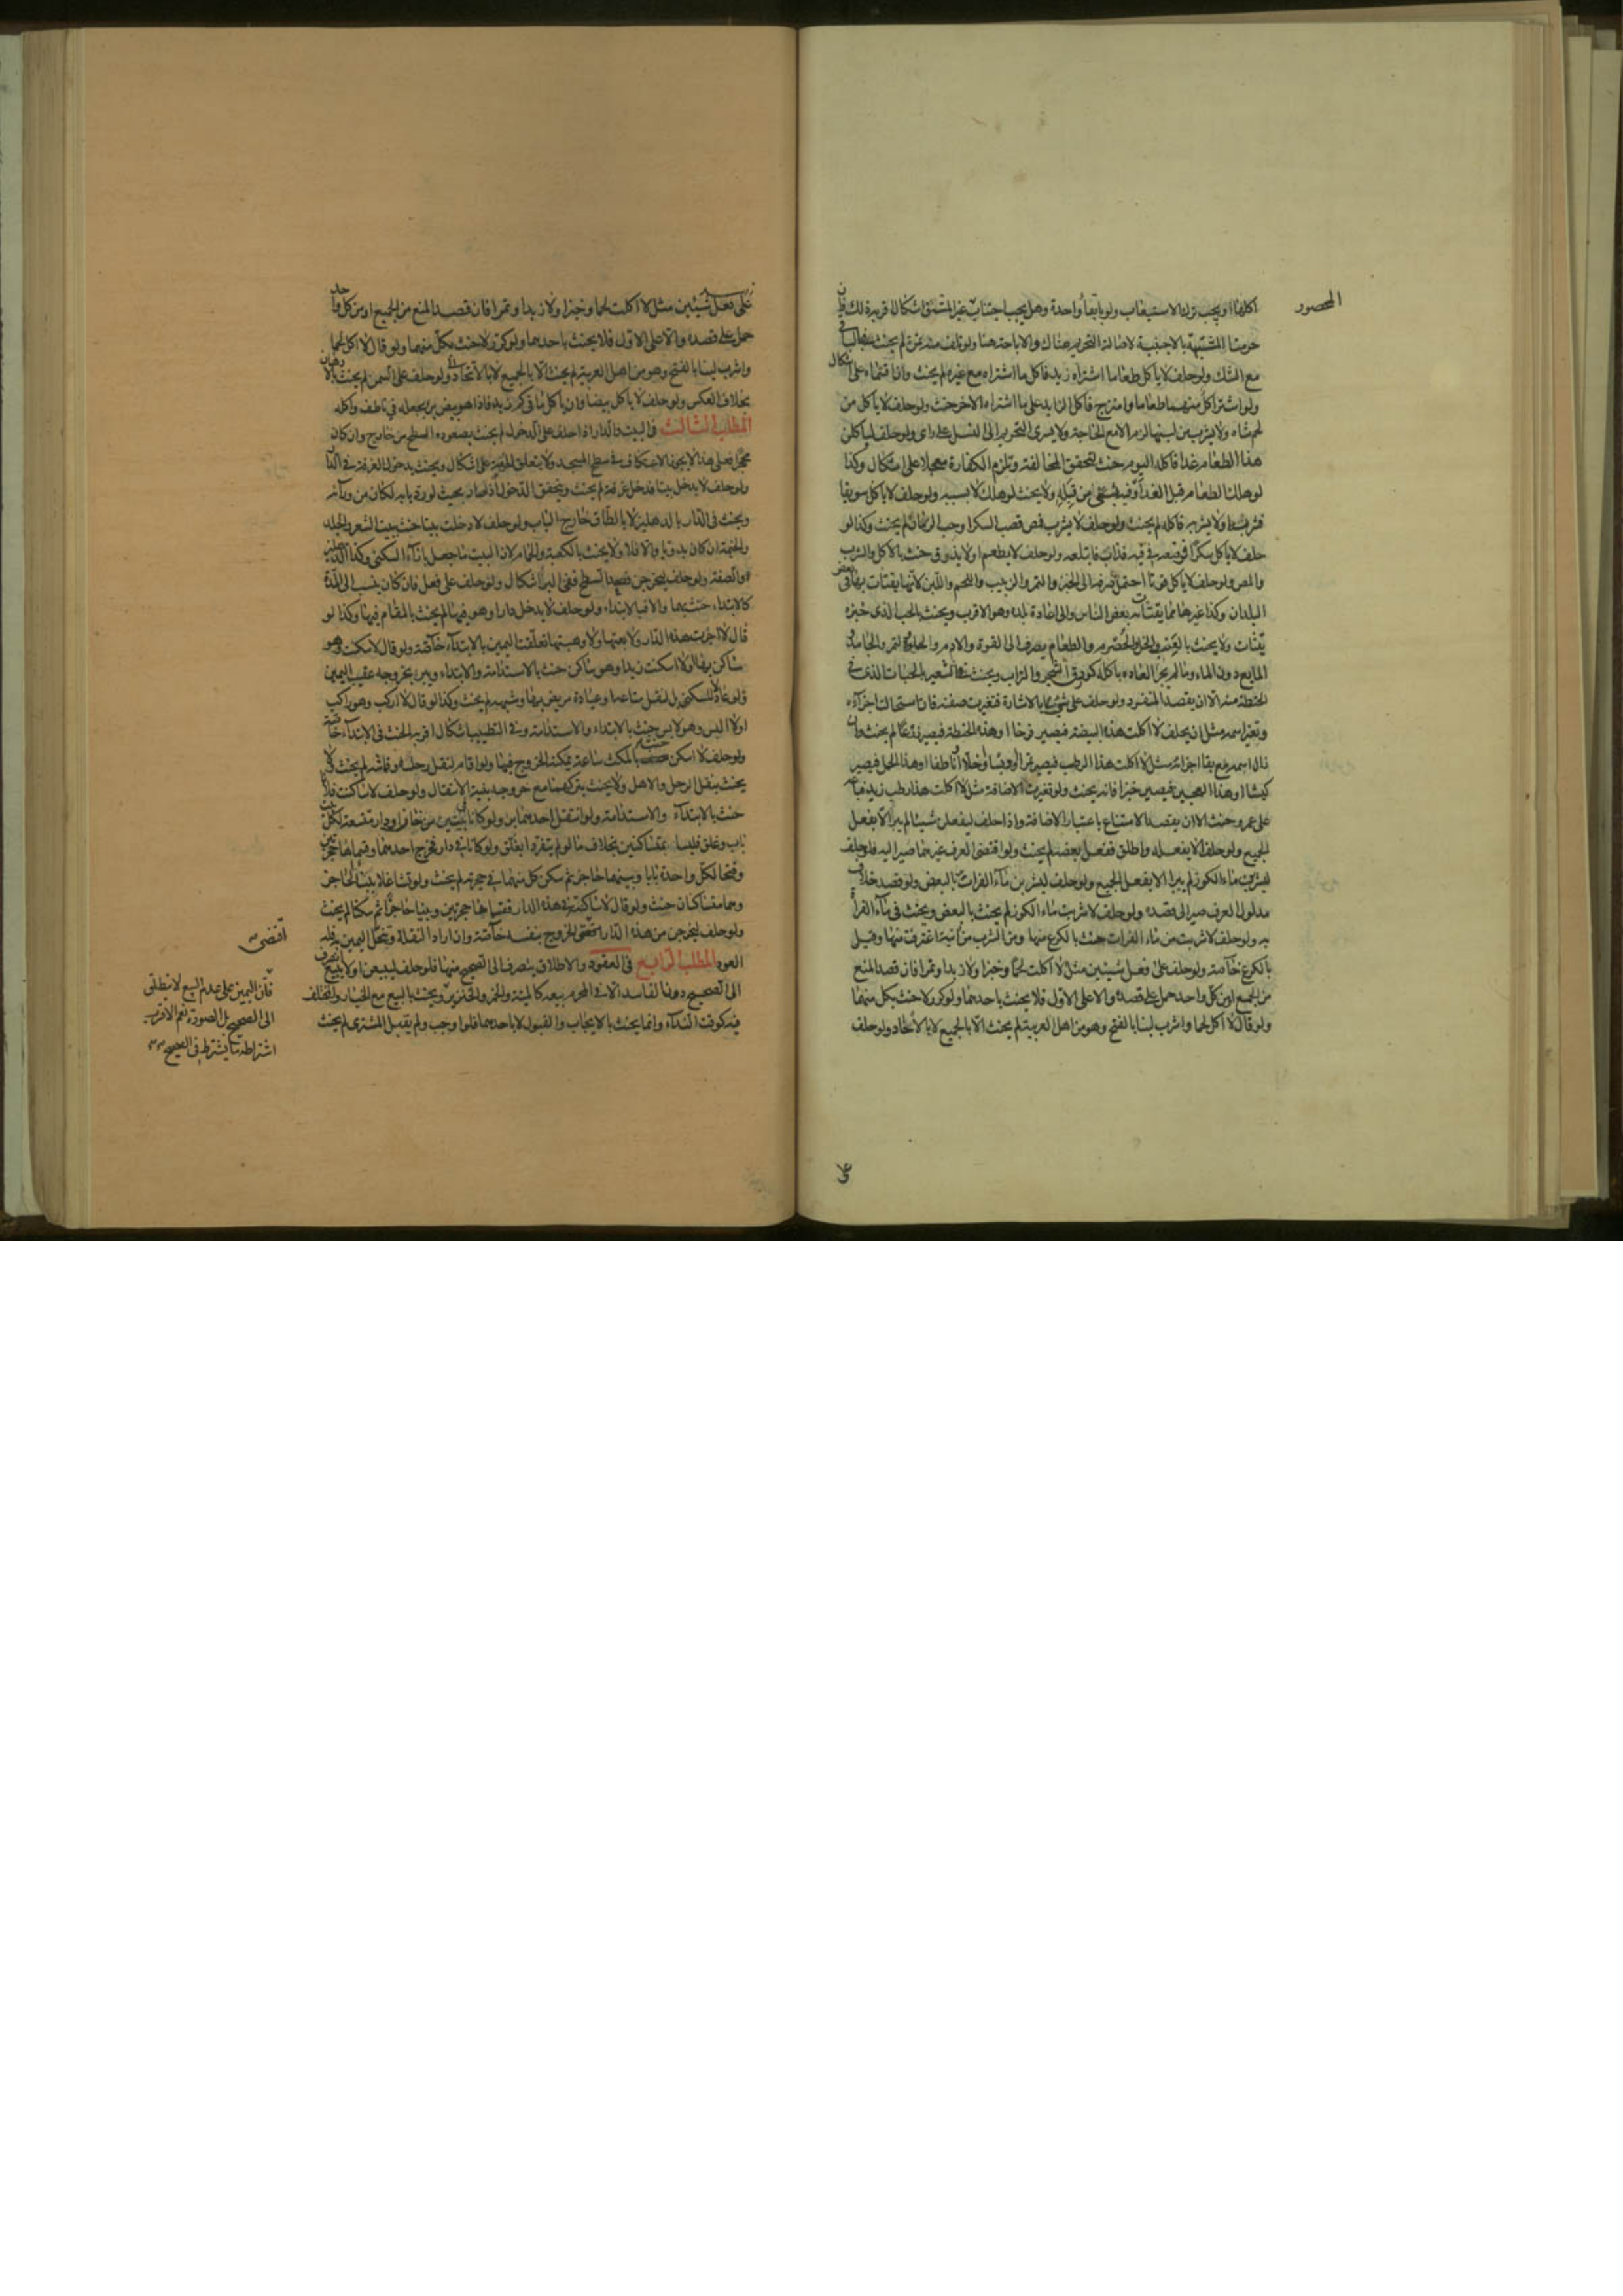 المحصور
اكلها او يجب ترك الاستيعاب ولو بابقاء واحدة وهل يجب اجتناب غير المشقق اشكال قربه ذلك فان
حرمنا المشتبهة بالاجنبية لاصالة التحريم هناك والاباحة هنا ولو تلف منه تمرة لم يحنث
مع الشك ولو حلف لا ياكل طعاما اشتراه زيد فاكل ما اشتراه مع غيره لم يحنث وان اقتسماه على اشكال
ولو اشترا كل منهما طعاما وامتزج فاكل الزايد على ما اشتراه الاخر حنث ولو حلف لا ياكل من
لحم شاة ولا يشرب من لبنها لزم الا مع الحاجة ولا يسرى التحريم الى النسل على راى ولو حلف لياكلن
هذا الطعام غدا فاكله اليوم حنث لتحقق المخالفة وتلزم الكفارة معجلا على اشكال وكذا
لو هلك الطعام قبل الغد او فيه بشئ من قبله ولا يحنث لو هلك لا بسببه ولو حلف لا ياكل سويقا
فشربه او لا يشربه فاكله لم يحنث ولو حلف لا يشرب فمص قصب السكر او حب الرمان لم يحنث وكذا لو
حلف لا ياكل سكرا فوضعه في فيه فذاب فابتلعه ولو حلف لا يطعم او لا يذوق حنث بالاكل والشرب
والمص ولو حلف لا ياكل قوتا احتمل صرفه الى الخبز والتمر والزبيب واللحم واللبن لانها يقتات بها في بعض
البلدان وكذا غيرها مما يقتات به بعض الناس والى عادة بلده وهو الاقرب ويحنث بالحب الذى خبزه
يقتات ولا يحنث بالعنب والخل والحصرم والطعام يصرف الى القوت والادم والحلوا والتمر والجامد و
المايع دون الماء وما لم يجر العادة باكله كورق الشجر والتراب ويحنث في الشعير بالحبات الذى في
الحنطة منه الا ان يقصد المنفرد ولو حلف على شئ بالاشارة فتغيرت صفته فان استحالت اجزاءه
وتغير اسمه مثل ان يحلف لا اكلت هذه البيضة فيصير فرخا او هذه الحنطة فيصير زرعا لم يحنث وان
زال اسمه مع بقا اجزائه مثل لا اكلت هذا الرطب فيصير تمرا او دبسا او خلا او ناطفا او هذا الحمل فيصير
كبشا او هذا العجين فيصير خبزا فانه يحنث ولو تغيرت الاضافة مثل لا اكلت هذا رطب زيد فباعه
على عمرو حنث الا ان يقصد الامتناع باعتبار الاضافة واذا حلف ليفعلن شيئا لم يبر الا بفعل
الجميع ولو حلف لا يفعله واطلق ففعل بعضه لم يحنث ولو اقتضى العرف غيرهما صير اليه فلو حلف
ليشربن ماء الكوز لم يبر الا بفعل الجميع ولو حلف ليشربن ماء الفرات بر بالبعض ولو قصد خلاف
مدلول العرف صير الى قصده ولو حلف لا شربت ماء الكوز لم يحنث بالبعض ويحنث في ماء الفرات
به ولو حلف لا شربت من ماء الفرات حنث بالكرع منها ومن الشرب من آنية اغترفت منها وقيل
بالكرع خاصة ولو حلف على فعل شيئين مثل لا اكلت لحما وخبزا ولا زبدا وتمرا فان قصد المنع
من الجميع او من كل واحد حمل على قصده والا على الاول فلا يحنث باحدهما ولو كرر لا حنث بكل منهما
ولو قال لا اكل لحما واشرب لبنا بالفتح وهو من اهل العربية لم يحنث الا بالجميع لا بالاتحاد ولو حلف
على فعل شيئين مثل لا اكلت لحما وخبزا ولا زبدا وتمرا فان قصد المنع من الجميع او من كل واحد
حمل على قصده والا على الاول فلا يحنث باحدهما ولو كرر لا حنث بكل منهما ولو قال لا اكل لحما
واشرب لبنا بالفتح وهو من اهل العربية لم يحنث الا بالجميع لا بالاتحاد ولو حلف على السمن لم يحنث بالادهان
بخلاف العكس ولو حلف لا ياكل بيضا وان ياكل ما في كم زيد فاذا هو بيض بر بجعله في ناطف واكله
المطلب الثالث في البيت والدار اذا حلف على الدخول لم يحنث بصعوده السطح من خارج وان كان
محجرا فعلى هذا لا يجوز الاعتكاف في سطح المسجد ولا يتعلق الحرمة على اشكال ويحنث بدخول الغرفة في الدار
ولو حلف لا يدخل بيتا فدخل غرفة لم يحنث ويتحقق الدخول اذا صار بحيث لو رد بابه لكان من ورآئه
ويحنث في الدار بالدهليز لا بالطاق خارج الباب ولو حلف لا دخلت بيتا حنث ببيت الشعر والجلد
والخيمة ان كان بدويا والا فلا ولا يحنث بالكعبة والحمام لان البيت ما جعل بازاء السكنى وكذا الدهليز
والصفة ولو حلف ليخرجن فصعد السطح ففى البر اشكال ولو حلف على فعل فان كان ينسب الى المدة
كالابتداء حنث بهما والا فبالابتداء ولو حلف لا يدخل دارا وهو فيها لم يحنث بالمقام فيها وكذا لو
قال لا اجرت هذه الدار ولا بعتها ولا وهبتها تعلقت اليمين بالابتداء خاصة ولو قال لا سكنت وهو
ساكن بها او لا اسكنت زيدا وهو ساكن حنث بالاستدامة والابتداء ويبر بخروجه عقيب اليمين
ولو عاد لا للسكنى بل لنقل متاعها وعيادة مريض بها وشبهه لم يحنث وكذا لو قال لا اركب وهو راكب
او لا البس وهو لابس حنث بالابتداء والاستدامة وفي التطييب اشكال اقربه الحنث في الابتداء خاصة
ولو حلف لا اسكن حنث بالمكث ساعة يمكنه الخروج فيها ولو اقام لنقل رحله وقماشه لم يحنث ولا
يحنث بنقل الرحل والاهل ولا يحنث بتركهما مع خروجه بنية الانتقال ولو حلف لا ساكنت فلانا
حنث بالابتداء والاستدامة ولو انتقل احدهما بر ولو كانا في بيتين من خان او دار متسعة لكل بيت
باب وغلق فليسا بمتساكنين بخلاف ما لو لم يتفردا بغلق ولو كانا في دار فخرج احدهما وقسماها حجرتين
وفتحا لكل واحدة بابا وبينهما حاجز ثم سكن كل منهما في حجرته لم يحنث ولو تشاغلا ببناء الحاجز
وهما متساكنان حنث ولو قال لا ساكنته في هذه الدار فقسماها حجرتين وبنيا حاجزا ثم سكنا لم يحنث
ولو حلف ليخرجن من هذه الدار اقتضى الخروج بنفسه خاصة وان اراد النقلة وتنحل اليمين به فله
العود المطلب الرابع في العقود والاطلاق ينصرف الى الصحيح منها فلو حلف ليبيعن او لا يبيع انصرف
الى الصحيح دون الفاسد الا في المحرم بيعه كالميتة والخمر والخنزير ويحنث بالبيع مع الخيار والمختلف
فيه كوقت النداء وانما يحنث بالايجاب والقبول لا باحدهما فلو اوجب ولم يقبل المشترى لم يحنث
اقتضى
فان اليمين على عدم البيع لا ينطلق
الى الصحيح بل الصورة نعم الاقرب
اشتراطه بما يشترط في الصحيح